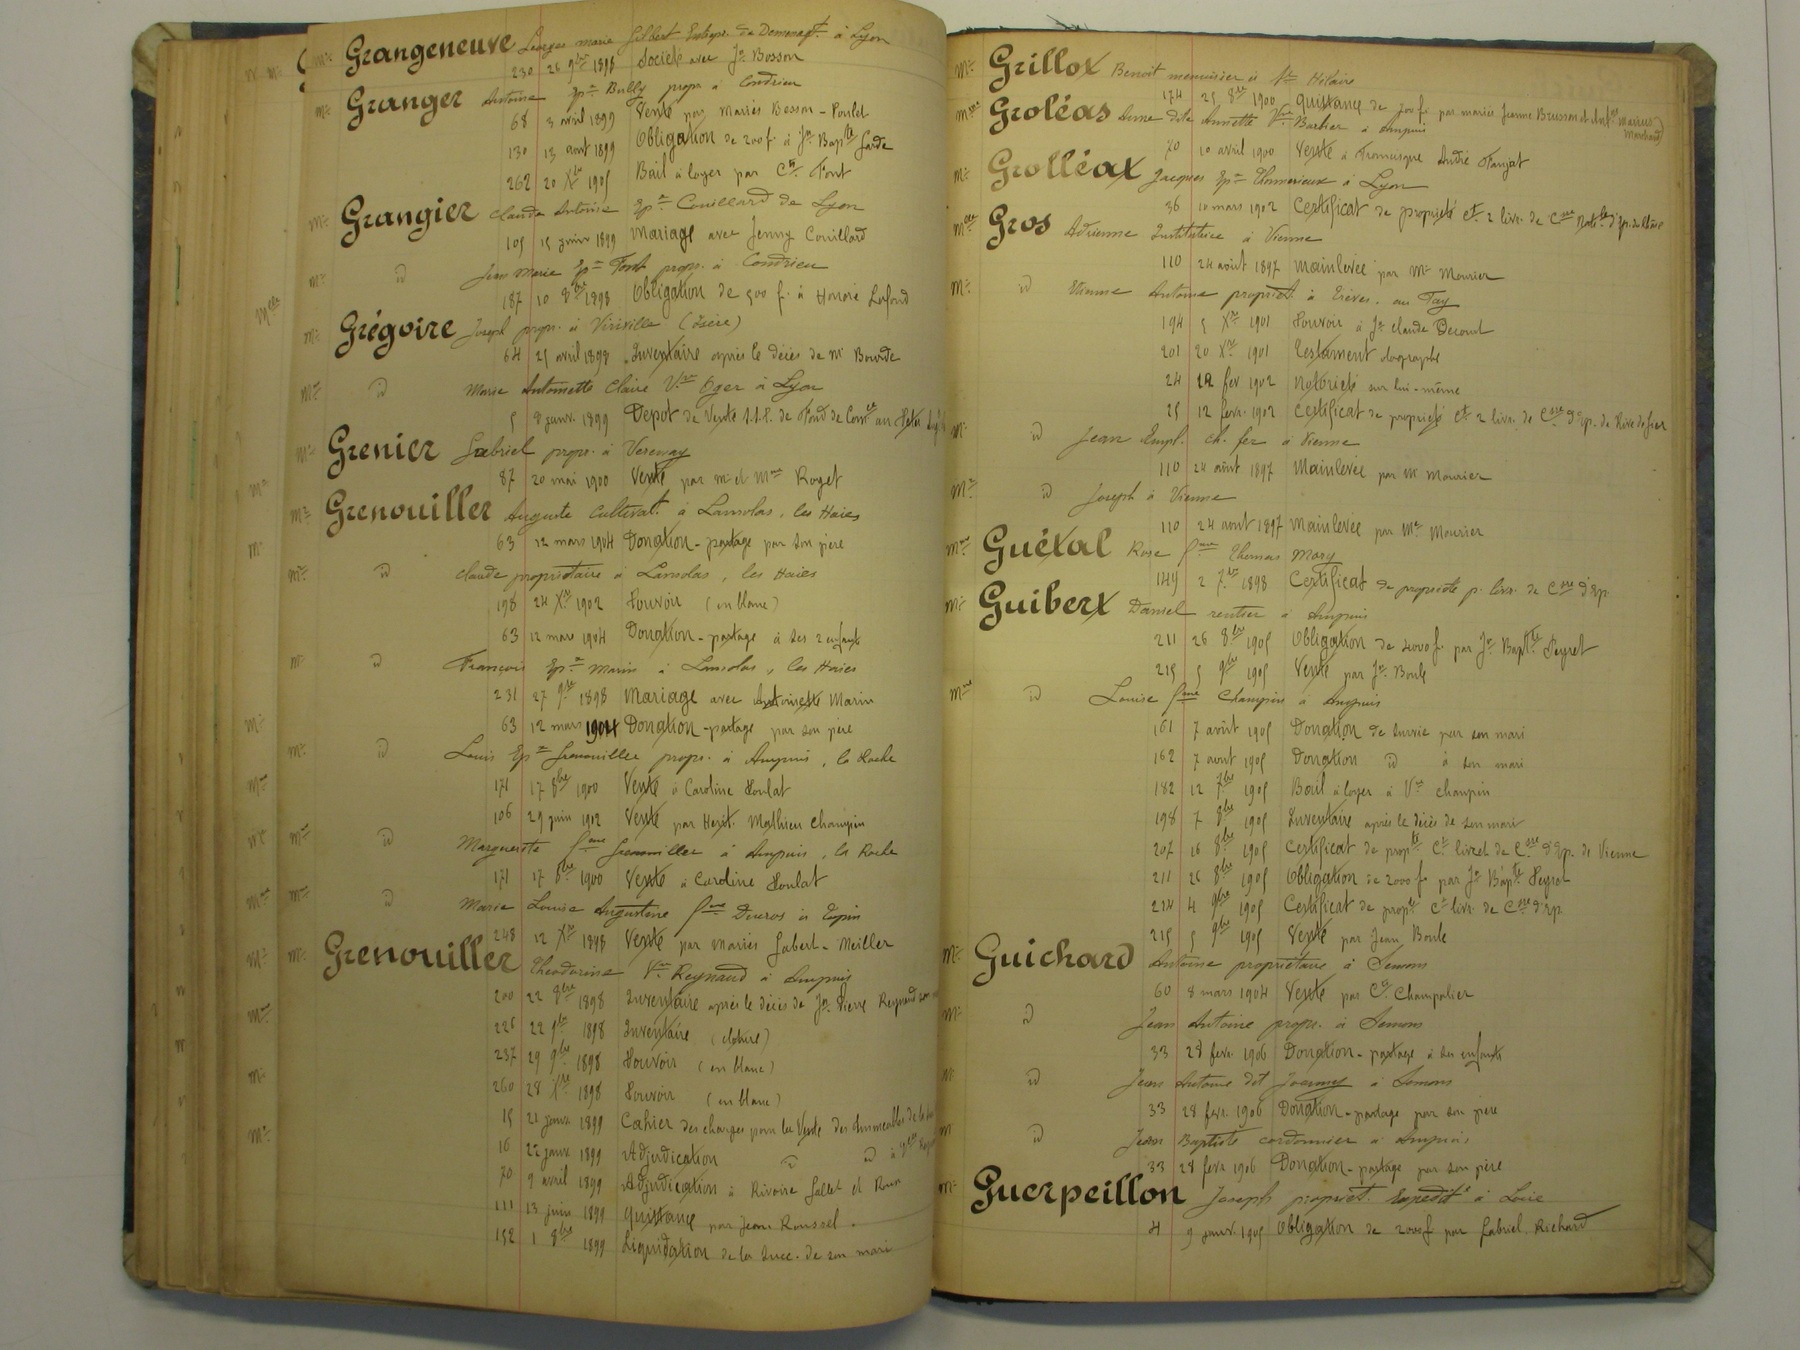 Mr Grangeneuve Georges marie Gilbert Entrepr. de Demenagt. à Lyon
230 26 9bre 1898 Société avec Jh Bosson
Mr Granger Antoine Epx Bully propr. à Condrieu
68 3 avril 1899 Vente par Mariés Besson - Poulet
130 13 aout 1899 Obligation de 200 f. à Jn Bapte Garde
262 20 Xbre 1905 Bail à loyer par Cte Font
Mr Grangier Claude Antoine Epx Couillard de Lyon
105 15 juin 1899 Mariage avec Jenny Couillard
Mr id Jean Marie Epx Font propr. à Condrieu
187 10 8bre 1898 Obligation de 500 f. à Honoré Lafond
Mr Grégoire Joseph propr. à Viriville (Isère)
64 25 avril 1898 Inventaire après le décès de Mr Bourde
Mme id Marie Antoinette Claire Vve Oger à Lyon
5 8 janv. 1899 Depot de Vente S.S.P. de Fond de Comce
Mr Grenier Gabriel propr. à Verenay
87 20 mai 1900 Vente par Mr et Mme Roget
Mr Grenouiller Auguste Cultivat. à Lansolas, les Haies
63 12 mars 1904 Donation - partage par son père
Mr id Claude propriétaire à Lansolas, les Haies
198 24 Xbre 1902 Pouvoir (en blanc)
63 12 mars 1904 Donation - partage à ses 2 enfants
Mr id François Epx Marin à Lansolas, les Haies
231 27 9bre 1898 Mariage avec Antoinette Marin
63 12 mars 1904 Donation - partage par son père
Mr id Louis Epx Grenouiller propr. à Ampuis, la Roche
171 17 8bre 1900 Vente à Caroline Poulat
106 29 juin 1902 Vente par Herit. Mathieu Champin
Mme id Marguerite fme Grenouiller à Ampuis, la Roche
171 17 8bre 1900 Vente à Caroline Poulat
Mme id Marie Louise Augustine fme Duvros à Eypin
248 12 Xbre 1898 Vente par Mariés Gabert - Meiller
Mme Grenouiller Théodorine Vve Reynaud à Ampuis
200 22 8bre 1898 Inventaire après le décès de Jn Pierre Reynaud
226 22 9bre 1898 Inventaire (clôture)
237 29 9bre 1898 Pouvoir (en blanc)
260 28 Xbre 1898 Pouvoir (en blanc)
15 21 janv. 1899 Cahier des charges pour la Vente des Immeubles de la
16 22 janv 1899 Adjudication id id à
70 9 avril 1899 Adjudication à Rivoire Gallet et Brun
111 13 juin 1899 Quittance par Jean Roussel.
152 1 8bre 1899 Liquidation de la Succ. de son mari
Mr Grillot Benoit menuisier à St Hilaire
174 25 8bre 1900 Quittance de 700 f. par mariés Jeanne Brusson et Ant. Marius Marchand
Mme Groléas Anne dite Annette Vve Barbier à Ampuis
70 10 avril 1900 Vente à Francisque André Faujat
Mr Grolléat Jacques Epx Thomerieux à Lyon
36 10 mars 1902 Certificat de propriété Ct. 2 livr. de Csse Natle d'Ep. du Rhône
Mlle Gros Adrienne Institutrice à Vienne
110 24 août 1897 Mainlevée par Mr Mourier
Mr id Etienne Antoine propriet. à Trèves. au Fay
194 5 Xbre 1901 Pouvoir à Jn Claude Decourt
201 20 Xbre 1901 Testament olographe
24 12 fev 1902 Notoriété sur lui-même
25 12 fevr. 1902 Certificat de propriété Ct. 2 livr. de Csse d'Ep. de Rive de Gier
Mr id Jean Empl. ch. fer à Vienne
110 24 août 1897 Mainlevée par Mr Mourier
Mr id Joseph à Vienne
110 24 aout 1897 Mainlevée par Mr Mourier
Mme Guétal Rose fme Thomas Mary
149 2 7bre 1898 Certificat de propriété p. livr. de Csse d'Ep.
Mr Guibert Daniel rentier à Ampuis
211 26 8bre 1905 Obligation de 2000 f. par Jn Bapte Peyret
215 5 9bre 1905 Vente par Jn Boule
Mme id Louise fme Champin à Ampuis
161 7 août 1905 Donation de survie par son mari
162 7 aout 1905 Donation id à son mari
182 12 7bre 1905 Bail à loyer à Vve Champin
198 7 8bre 1905 Inventaire après le décès de son mari
207 16 8bre 1905 Certificat de propté Ct livret de Csse d'Ep. de Vienne
211 26 8bre 1905 Obligation de 2000 f. par Jn Bapte Peyret
214 4 9bre 1905 Certificat de propté Ct livr. de Csse d'Ep
215 5 9bre 1905 Vente par Jean Boule
Mr Guichard Antoine propriétaire à Semons
60 8 mars 1904 Vente par Cte Champalier
Mr id Jean Antoine propr. à Semons
33 28 fevr. 1906 Donation - partage à ses enfants
Mr id Jean Antoine dit Joanny à Semons
33 28 fevr. 1906 Donation - partage par son père
Mr id Jean Baptiste cordonnier à Ampuis
33 28 fevr 1906 Donation - partage par son père
Mr Guerpeillon Joseph propriet. Expedit. à Loire
4 9 janv. 1905 Obligation de 2000 f par Gabriel Richard